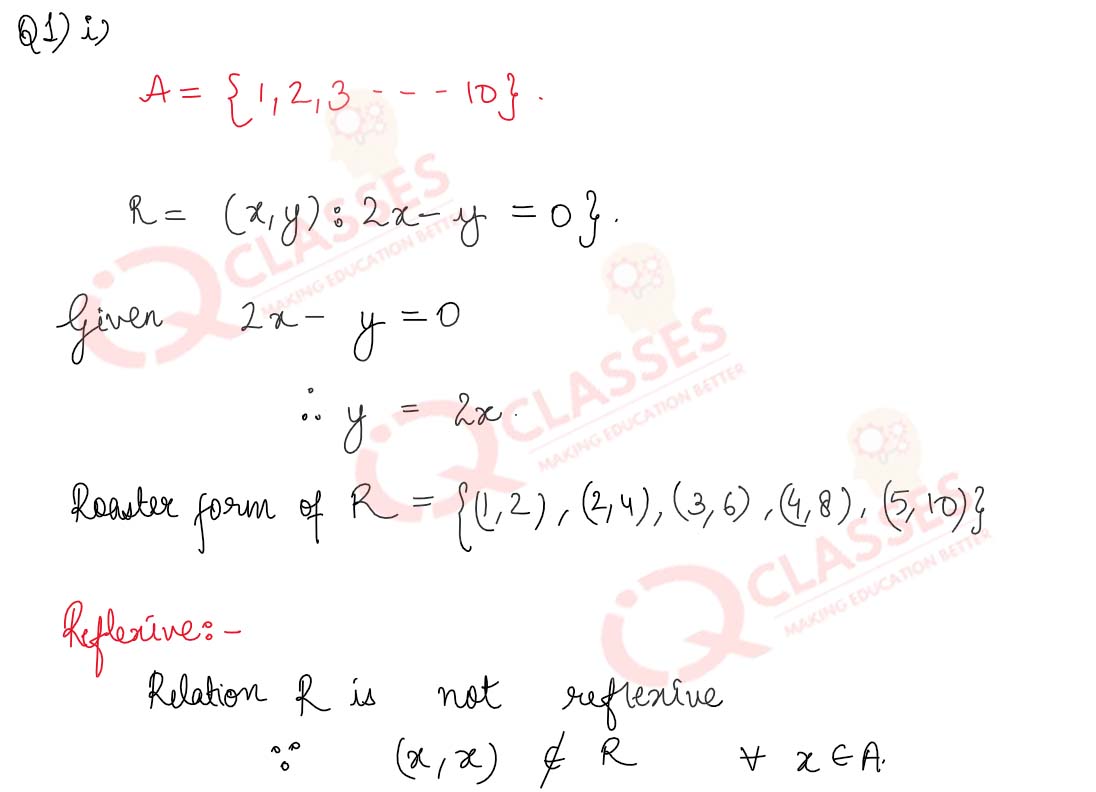 Q1) i)
A = {1, 2, 3 - - - 10}.
R = (x, y) : 2x - y = 0}.
Given 2x - y = 0
∴ y = 2x.
Roaster form of R = {(1, 2), (2, 4), (3, 6), (4, 8), (5, 10)}
Reflexive:-
Relation R is not reflexive
∵ (x, x) ∉ R ∀ x ∈ A.
iQ CLASSES
MAKING EDUCATION BETTER
iQ CLASSES
MAKING EDUCATION BETTER
iQ CLASSES
MAKING EDUCATION BETTER